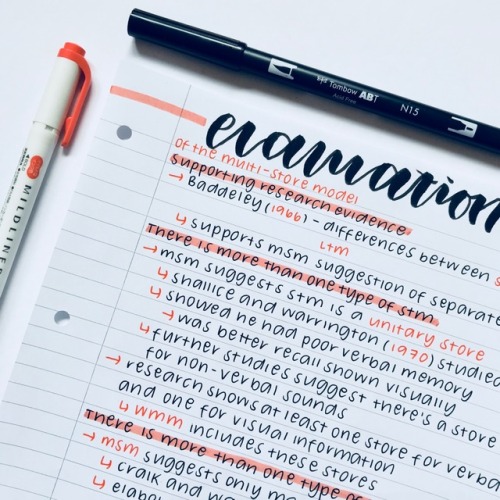 Tombow ABT N15
Acid Free
MILDLINER
evaluation
of the multi-store model
supporting research evidence
→ Baddeley (1966) - differences between s
LTM
↳ supports msm suggestion of separate
there is more than one type of stm
→ msm suggests stm is a unitary store
↳ shallice and warrington (1970) studied
↳ showed he had poor verbal memory
↳ was better recall shown visually
↳ further studies suggest there's a store
for non-verbal sounds
→ research shows at least one store for verba
and one for visual information
↳ wmm includes these stores
there is more than one type of
→ msm suggests only
↳ craik and wa
↳ elabo